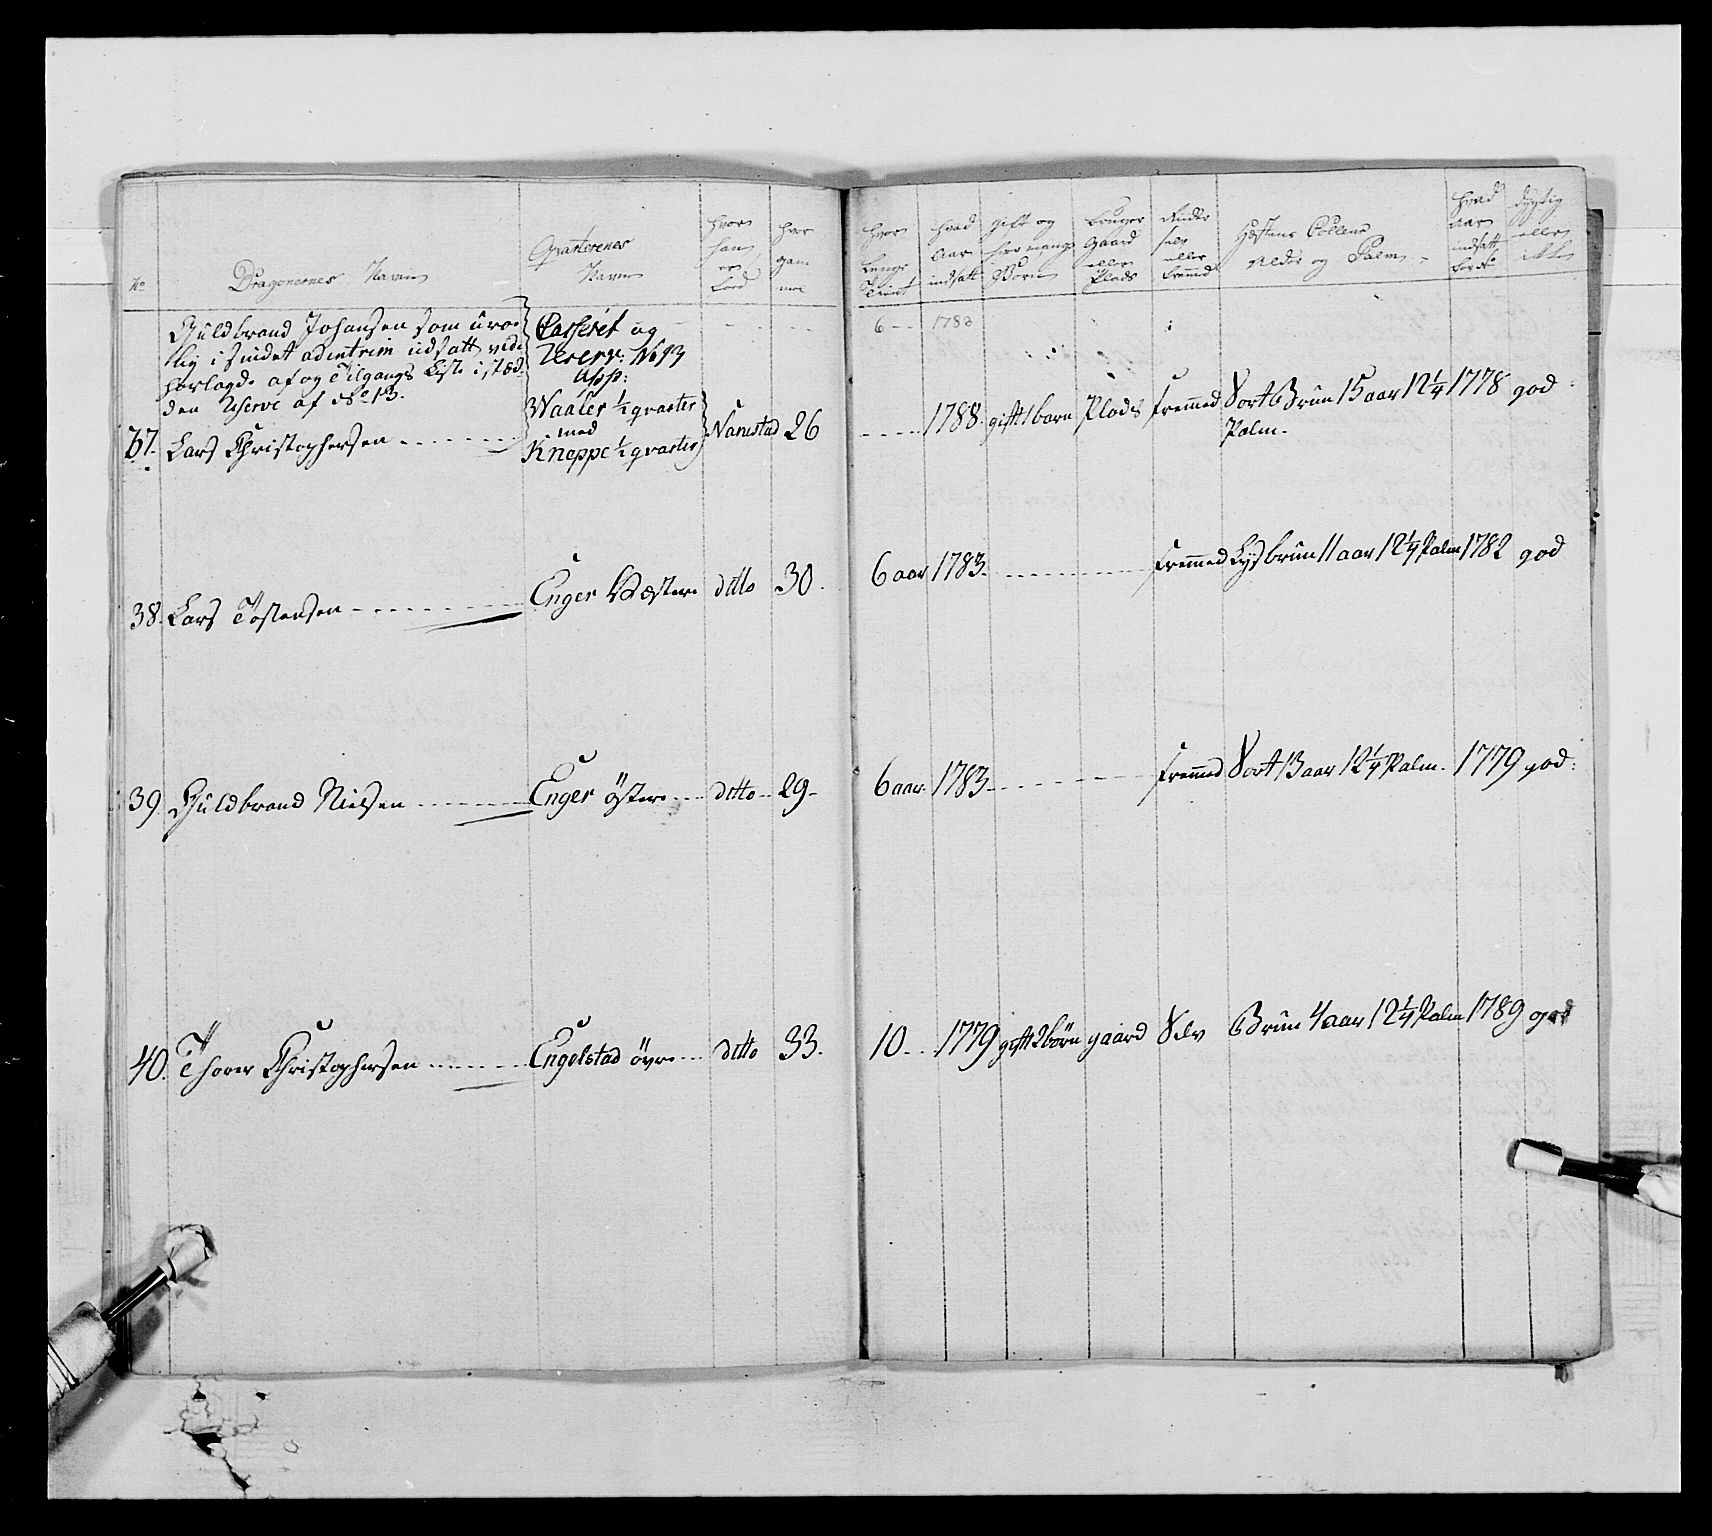 No
Dragonernes Navn
Qvarterenes
Navn
hvor
han
er
født
hvor
gam
mel
hvor
lenge
tient
hvad
aar
indsatt
gift og
hvor mange
Børn
bruger
Gaard
eller
Plads
Rider
selv
eller
fremmed
Hæstens Coulleur
Alder og Palm
hvad
aar
indsatt
dygtig
eller
ikke
Guldbrand Johansen som uroe
lig i sindet adintrim udsatt vide
horlagde af og Tilgangs Liste i stæd
den Reserve af No 13.
Casseret og
Reserv: No 13
App:
6 1783
37. Lars Christophersen
Waaler 1/2 qvarter
med
Knappe 1/2 qvarter
Nanestad 26
1788. gift 1 barn Plads fremmed Sort Brun 15 aar 12 1/4 1778 god
Palm.
38. Lars Tostensen Enger Væstere ditto 30. 6 aar 1783. fremmed Lys brun 11 aar 12 1/4 Palm 1782 god
39. Guldbrand Nielsen Enger östere ditto 29 6 aar 1783 fremmed Sort 13 aar 12 1/4 Palm. 1779 god:
40. Thorer Christophersen Engelstad övre ditto 33. 10 1779 gift 2 börn gaard Selv Brun 4 aar 12 1/4 Palm 1789 god